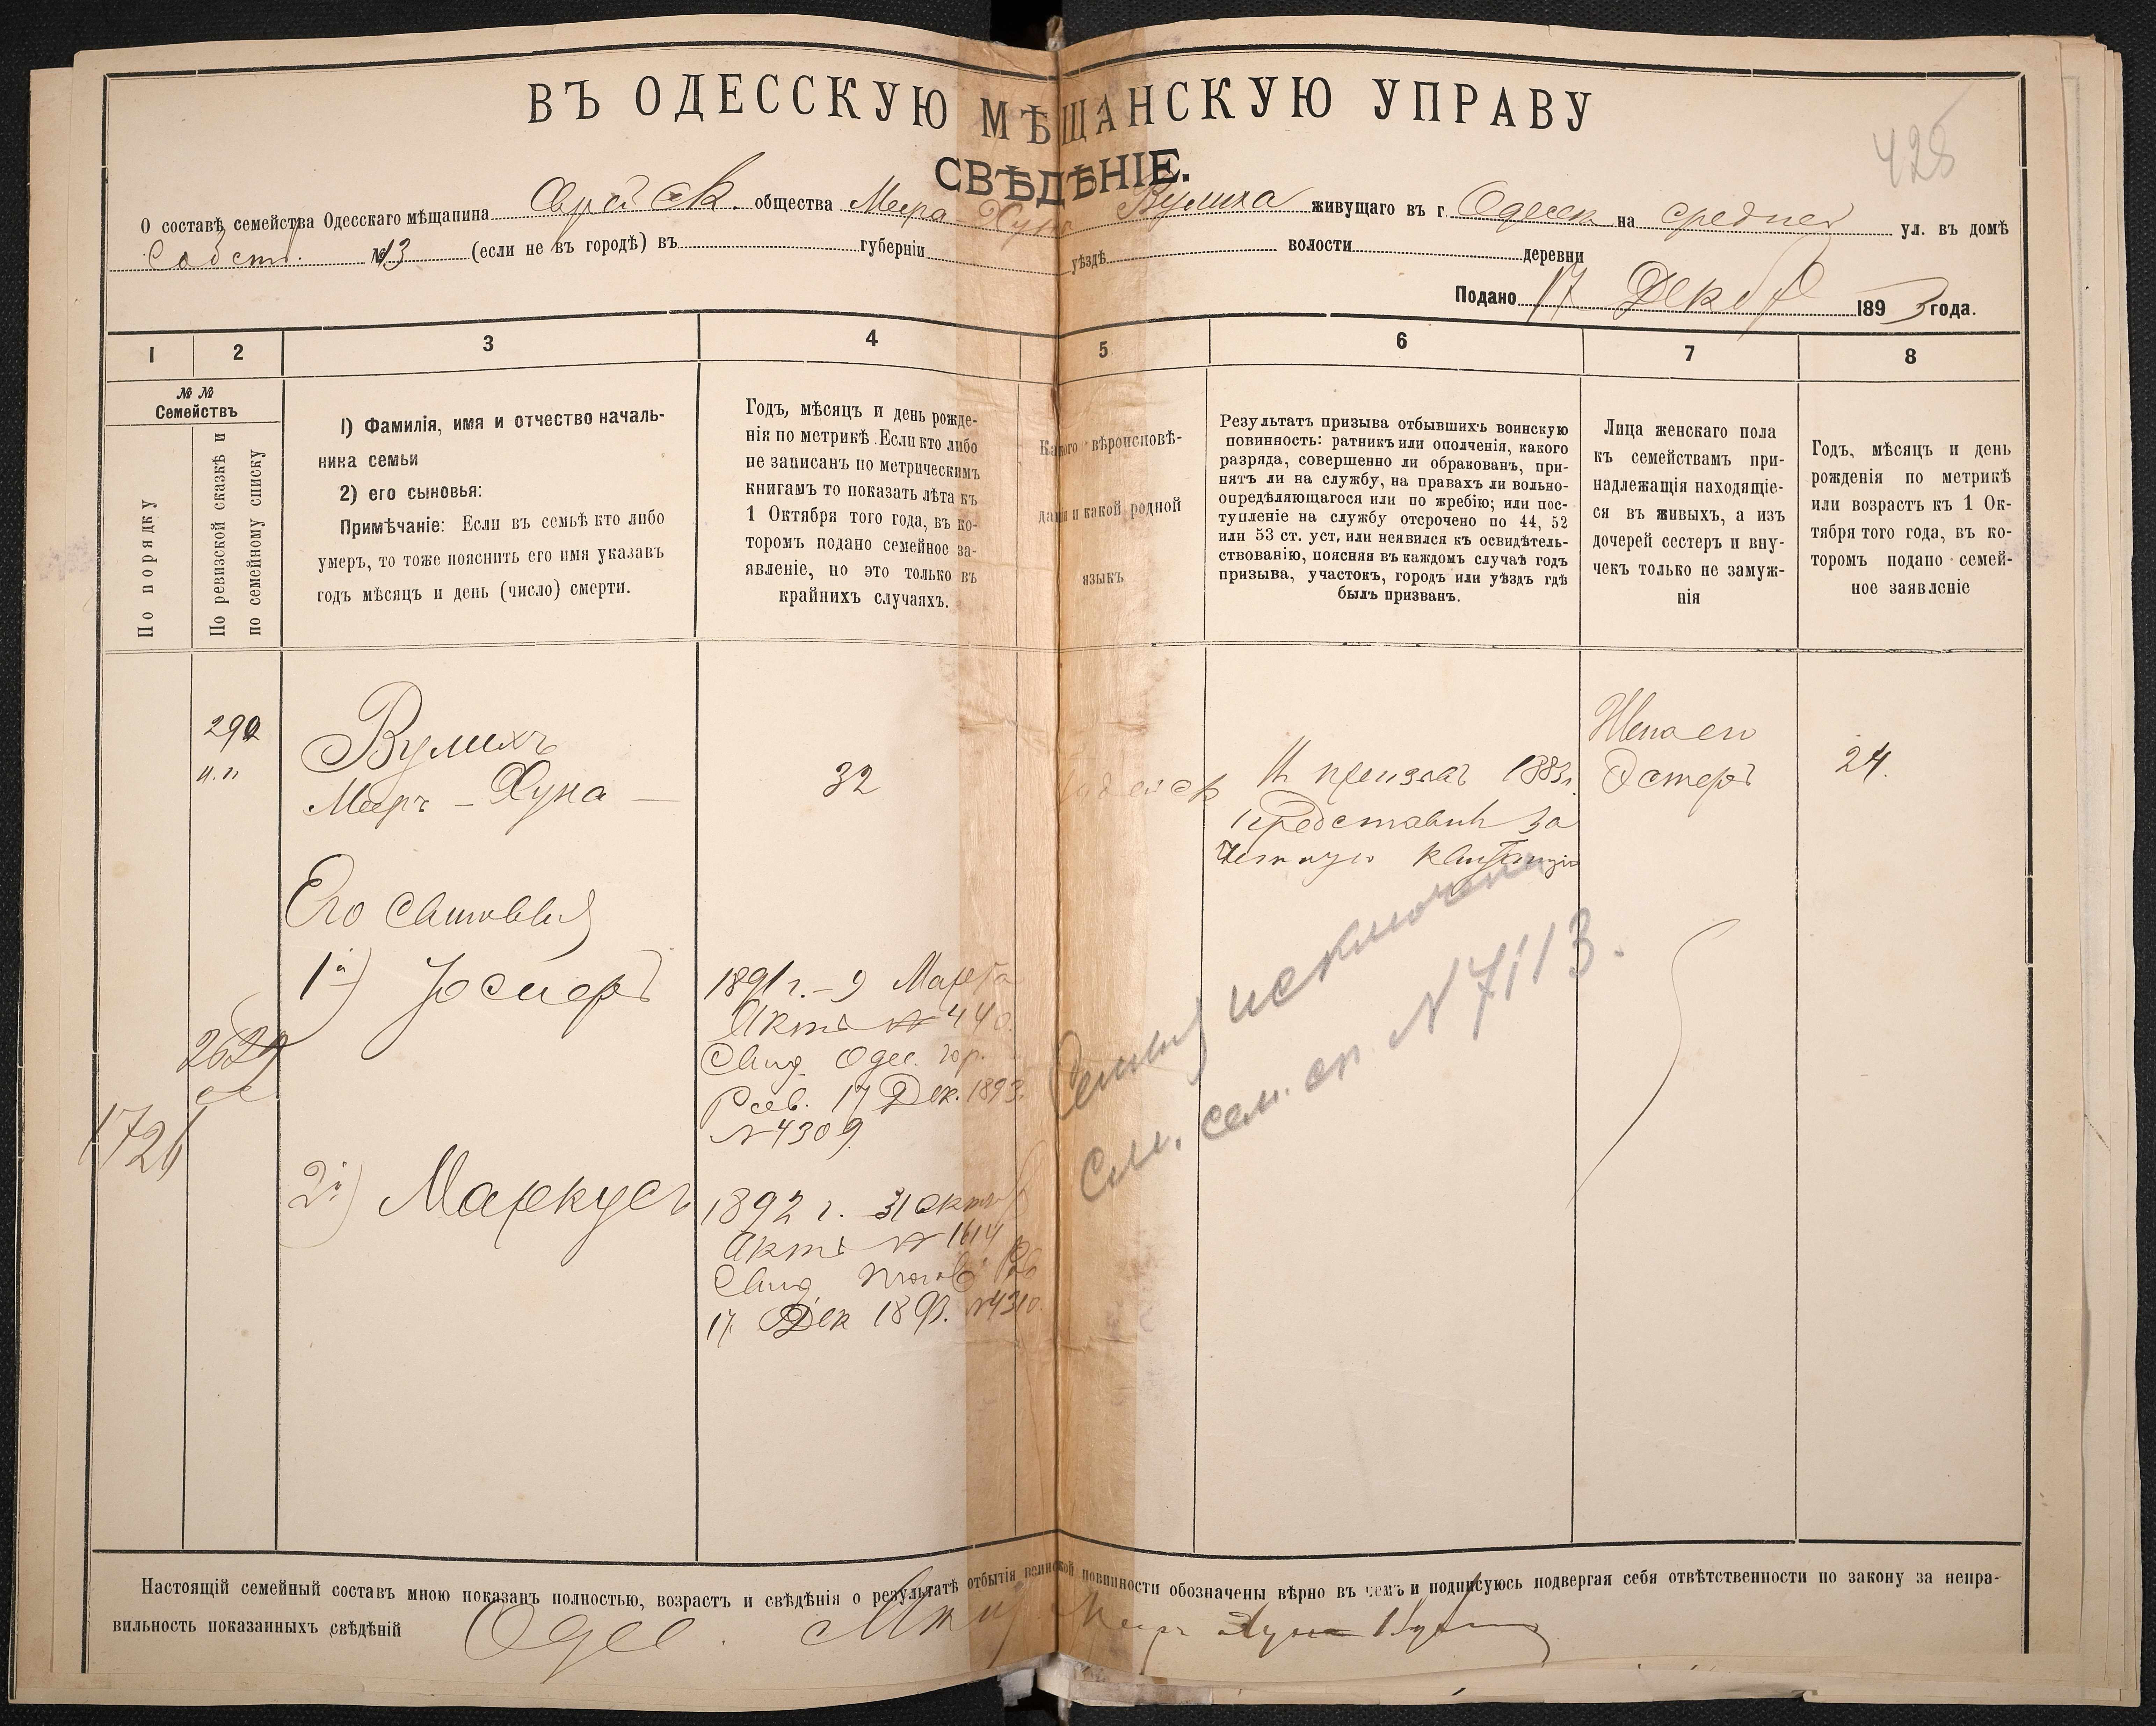 ВЪ ОДЕССКУЮ МѢЩАНСКУЮ УПРАВУ
СВѢДѢНІЕ.
428
О составѣ семейства Одесскаго мѣщанина Еврейск. общества Меера-Хуна Вулиха живущаго въ г. Одессѣ на средней ул. въ домѣ
Собств. № 13 (если не въ городѣ) въ губерніи уѣздѣ волости деревни
Подано 17 Декаб 1893 года.
1 2 3 4 5 6 7 8
№№
Семействъ
По порядку
По ревизской сказкѣ и
по семейному списку
1) Фамилія, имя и отчество началь-
ника семьи
2) его сыновья:
Примѣчаніе: Если въ семьѣ кто либо
умеръ, то тоже пояснить его имя указавъ
годъ мѣсяцъ и день (число) смерти.
Годъ, мѣсяцъ и день рожде-
нія по метрикѣ. Если кто либо
не записанъ по метрическимъ
книгамъ то показать лѣта къ
1 Октября того года, въ ко-
торомъ подано семейное за-
явленіе, но это только въ
крайнихъ случаяхъ.
Какого вѣроисповѣ-
данія и какой родной
языкъ
Результатъ призыва отбывшихъ воинскую
повинность: ратникъ или ополченія, какого
разряда, совершенно ли обракованъ, при-
нятъ ли на службу, на правахъ ли вольно-
опредѣляющагося или по жребію; или пос-
тупленіе на службу отсрочено по 44, 52
или 53 ст. уст. или неявился къ освидѣтель-
ствованію, поясняя въ каждомъ случаѣ годъ
призыва, участокъ, городъ или уѣздъ гдѣ
былъ призванъ.
Лица женскаго пола
къ семействамъ при-
надлежащія находящіе-
ся въ живыхъ, а изъ
дочерей сестеръ и вну-
чекъ только не замуж-
нія
Годъ, мѣсяцъ и день
рожденія по метрикѣ
или возрастъ къ 1 Ок-
тября того года, въ ко-
торомъ подано семей-
ное заявленіе
290
н.п.
Вулихъ
Мееръ-Хуна
32
призыв 1883 г.
Представил за
квитанцію
Жена его
Эстеръ
24.
Его сыновья
1й) Іосифъ
1891 г. - 9 Марта
Актъ № 440.
Свид. Одес. гор.
Рав. 17 Дек. 1893
№ 4309.
2629
1721
2й) Маркусъ
1892 г. 31 октяб
Актъ № 1614
Свид. того Рав
17 Дек 1893. № 4310.
Семья исключена
См. сем. сп. № 7113.
Настоящій семейный составъ мною показанъ полностью, возрастъ и свѣдѣнія о результатѣ отбытія воинской повинности обозначены вѣрно въ чемъ и подписуюсь подвергая себя отвѣтственности по закону за непра-
вильность показанныхъ свѣдѣній Одес. Меер Хуна Вулих